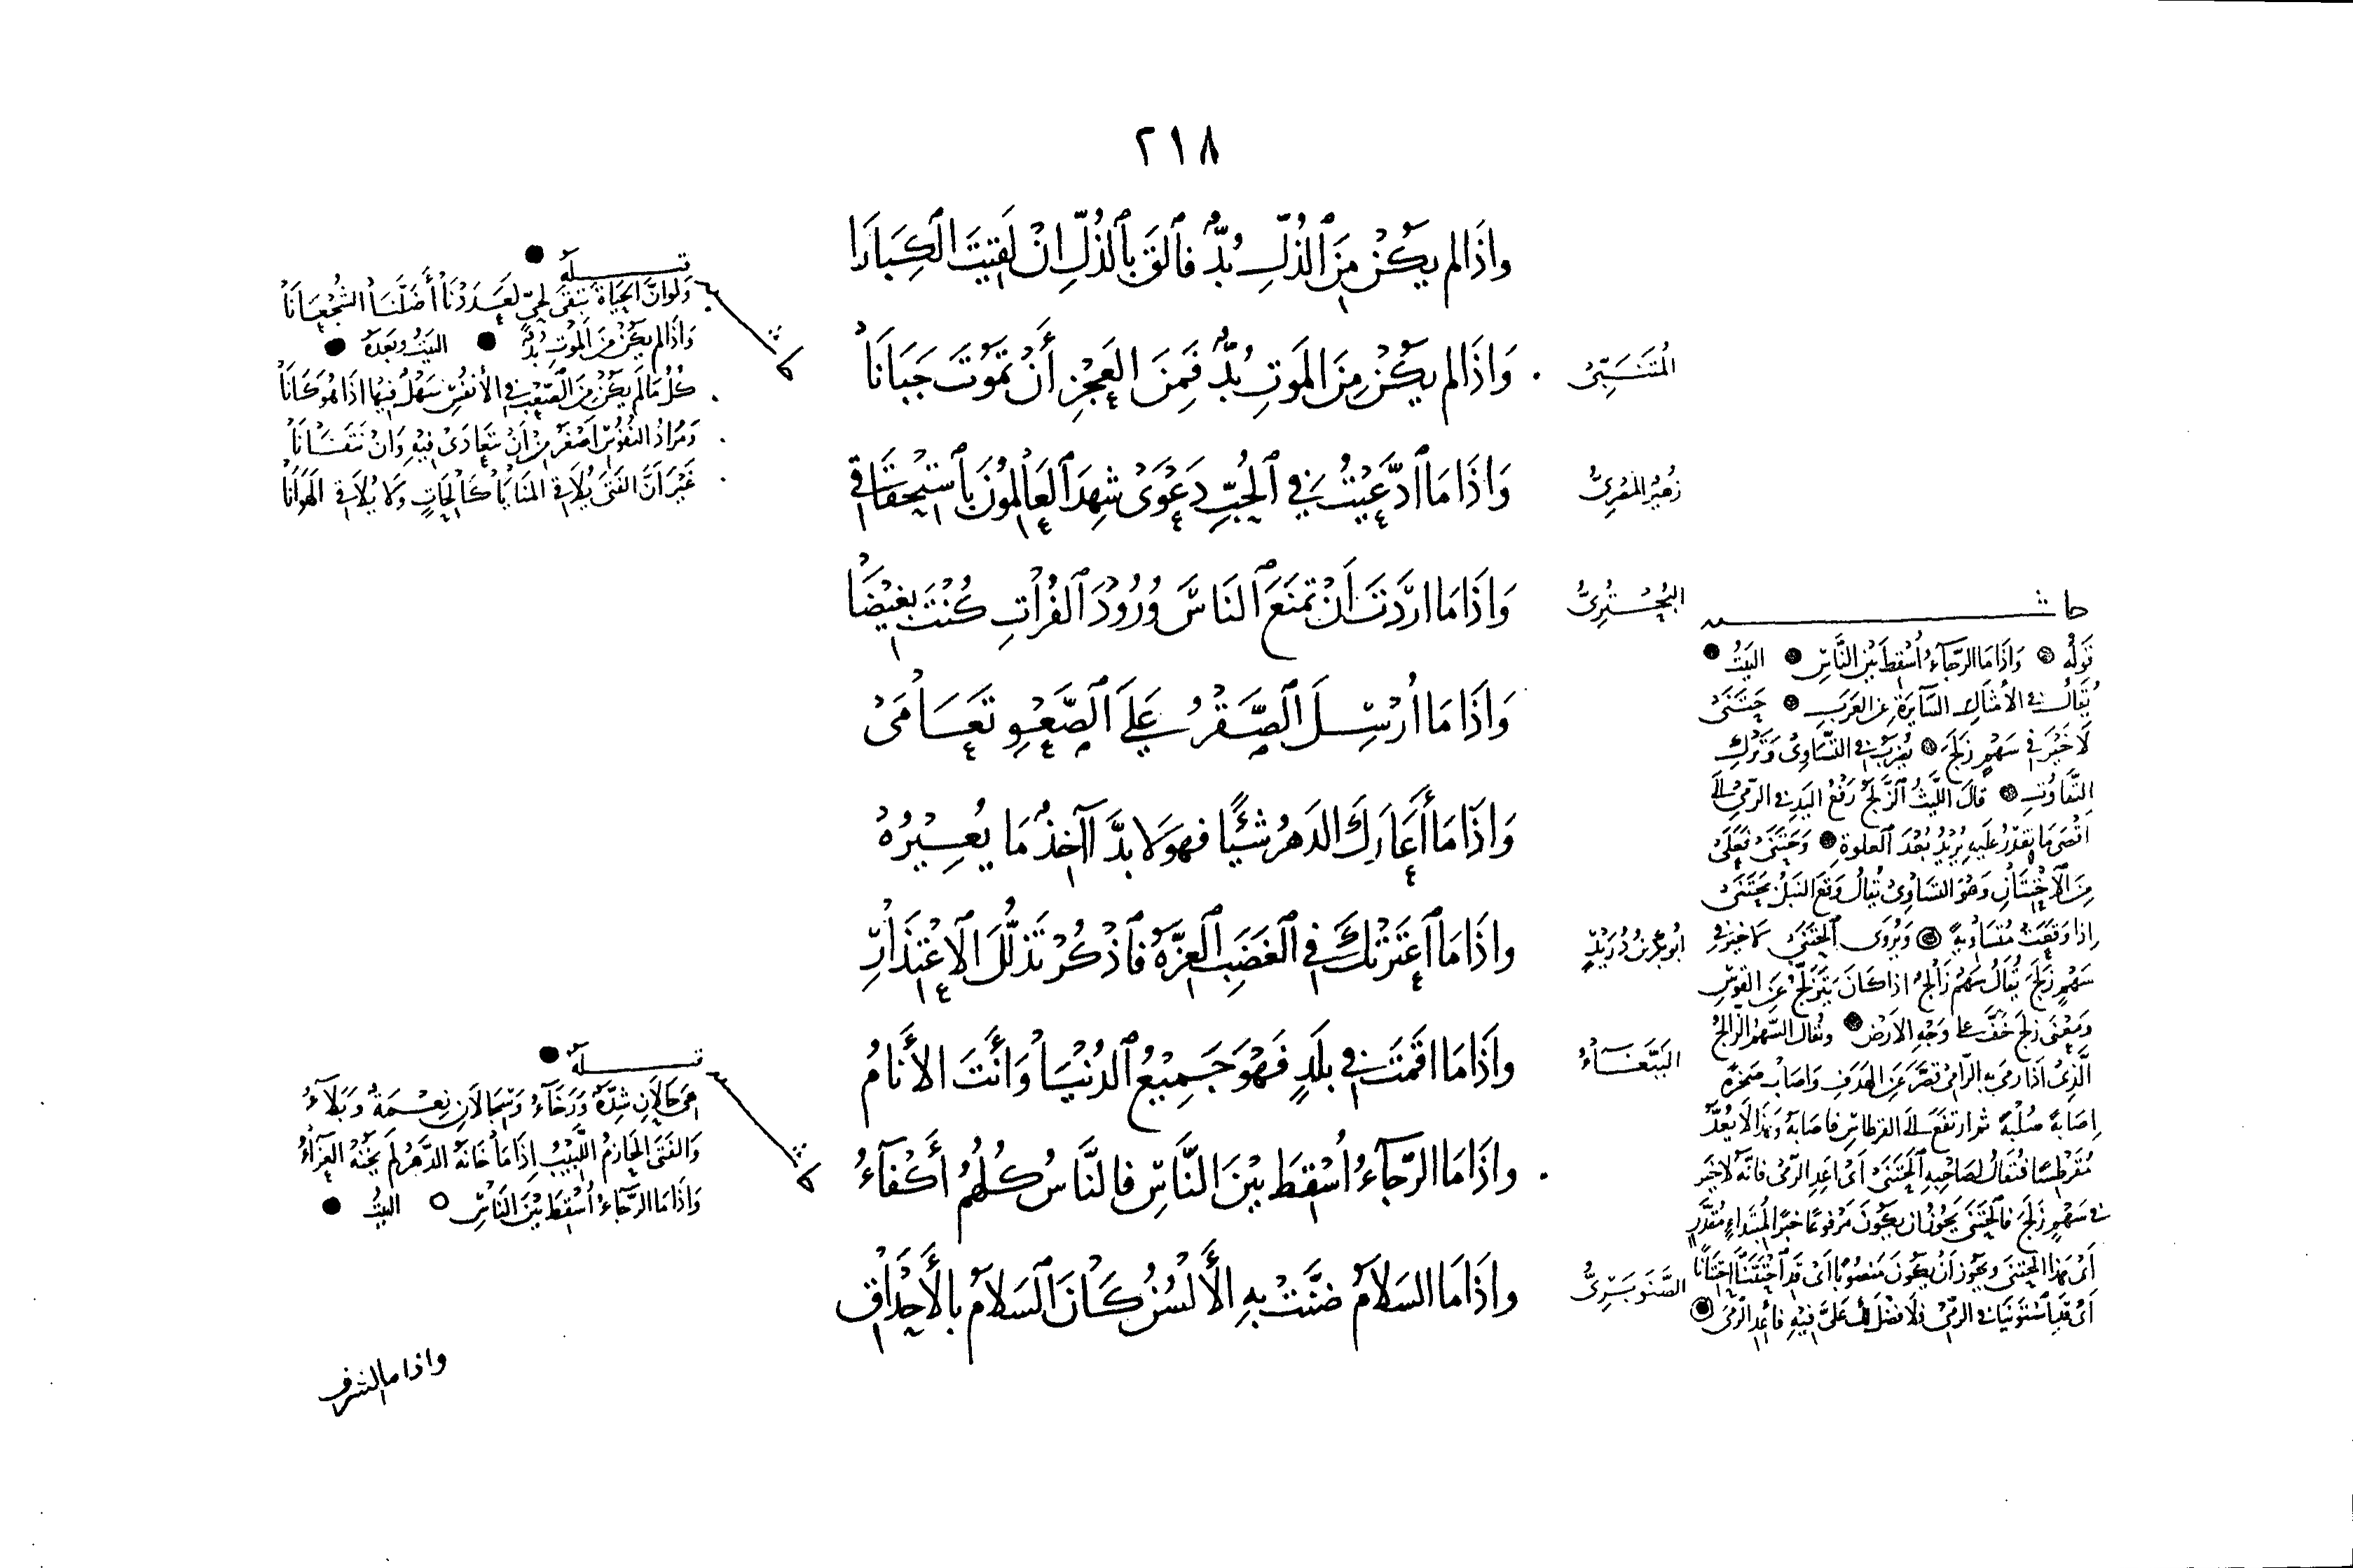 ٢١٨
واذا لم يكن من الذل بد فالق بالذل ان لقيت الكبارا
المتنبي
واذا لم يكن من الموت بد فمن العجز أن تموت جبانا
زهير المصري
واذا ما ادعيت في الحب دعوى شهد العالمون باستحقاقي
البحتري
واذا ما اردت ان تمنع الناس ورود الفرات كنت بغيضا
واذا ما ارسل الصقر على الصعو تعامى
واذا ما أعارك الدهر شيئا فهو لا بد آخذ ما يعيره
ابو بكر بن دريد
واذا ما اعترتك في الغضب العزة فاذكر تذلل الاعتذار
الببغاء
واذا ما اقمت في بلد فهو جميع الدنيا وأنت الأنام
واذا ما الرجاء اسقط بين الناس فالناس كلهم أكفاء
الصنوبري
واذا ما السلام ضنت به الألسن كان السلام بالأحداق
قبله
ولو ان الحياة تبقى لحي لعددنا أضلنا الشجعانا
واذا لم يكن من الموت بد البيت وبعده
كل ما لم يكن من الصعب في الأنفس سهل فيها اذا هو كانا
ومراد النفوس اصغر من ان نتعادى فيه وان نتفانا
غير ان الفتى يلاقي المنايا كالحات ولا يلاقي الهوانا
قبله
هي حالان شدة ورخاء وسجالان نعمة وبلاء
والفتى الحازم اللبيب اذا ما خانه الدهر لم يخنه العزاء
واذا ما الرجاء اسقط بين الناس البيت
حاشية
قوله واذا ما الرجاء اسقط بين الناس البيت
يقال في الأمثال السائرة عن العرب حتنى
لا خير في سهم زلج يضرب في التساوي وترك
التفاوت قال الليث الزلج رفع اليد في الرمي الى
اقصى ما يقدر عليه يريد بعد الغلوة وحتنى فعلى
من الاحتتان وهو التساوي يقال وقع النبل حتنى
اذا وقعت متساوية ويروى الحتنى لا خير في
سهم زلج يقال سهم زالج اذا كان يتزلج عن القوس
ومعنى زلج خف على وجه الارض ويقال السهم الزالج
الذي اذا رمى به الرامي قصر عن الهدف واصاب صخرة
اصابة صلبة ثم ارتفع الى القرطاس فاصابه وهذا لا يعد
مقرطسا فيقال لصاحبه الحتنى اي اعد الرمي فانه لا خير
في سهم زلج فالحتنى يجوز ان يكون مرفوعا خبر المبتداء مقدر
اي هذا الحتنى ويجوز ان يكون منصوبا اي قد احتتنا احتتانا
اي قد استوينا في الرمي فلا فضل لك علي فيه فاعد الرمي
واذا ما الشرف